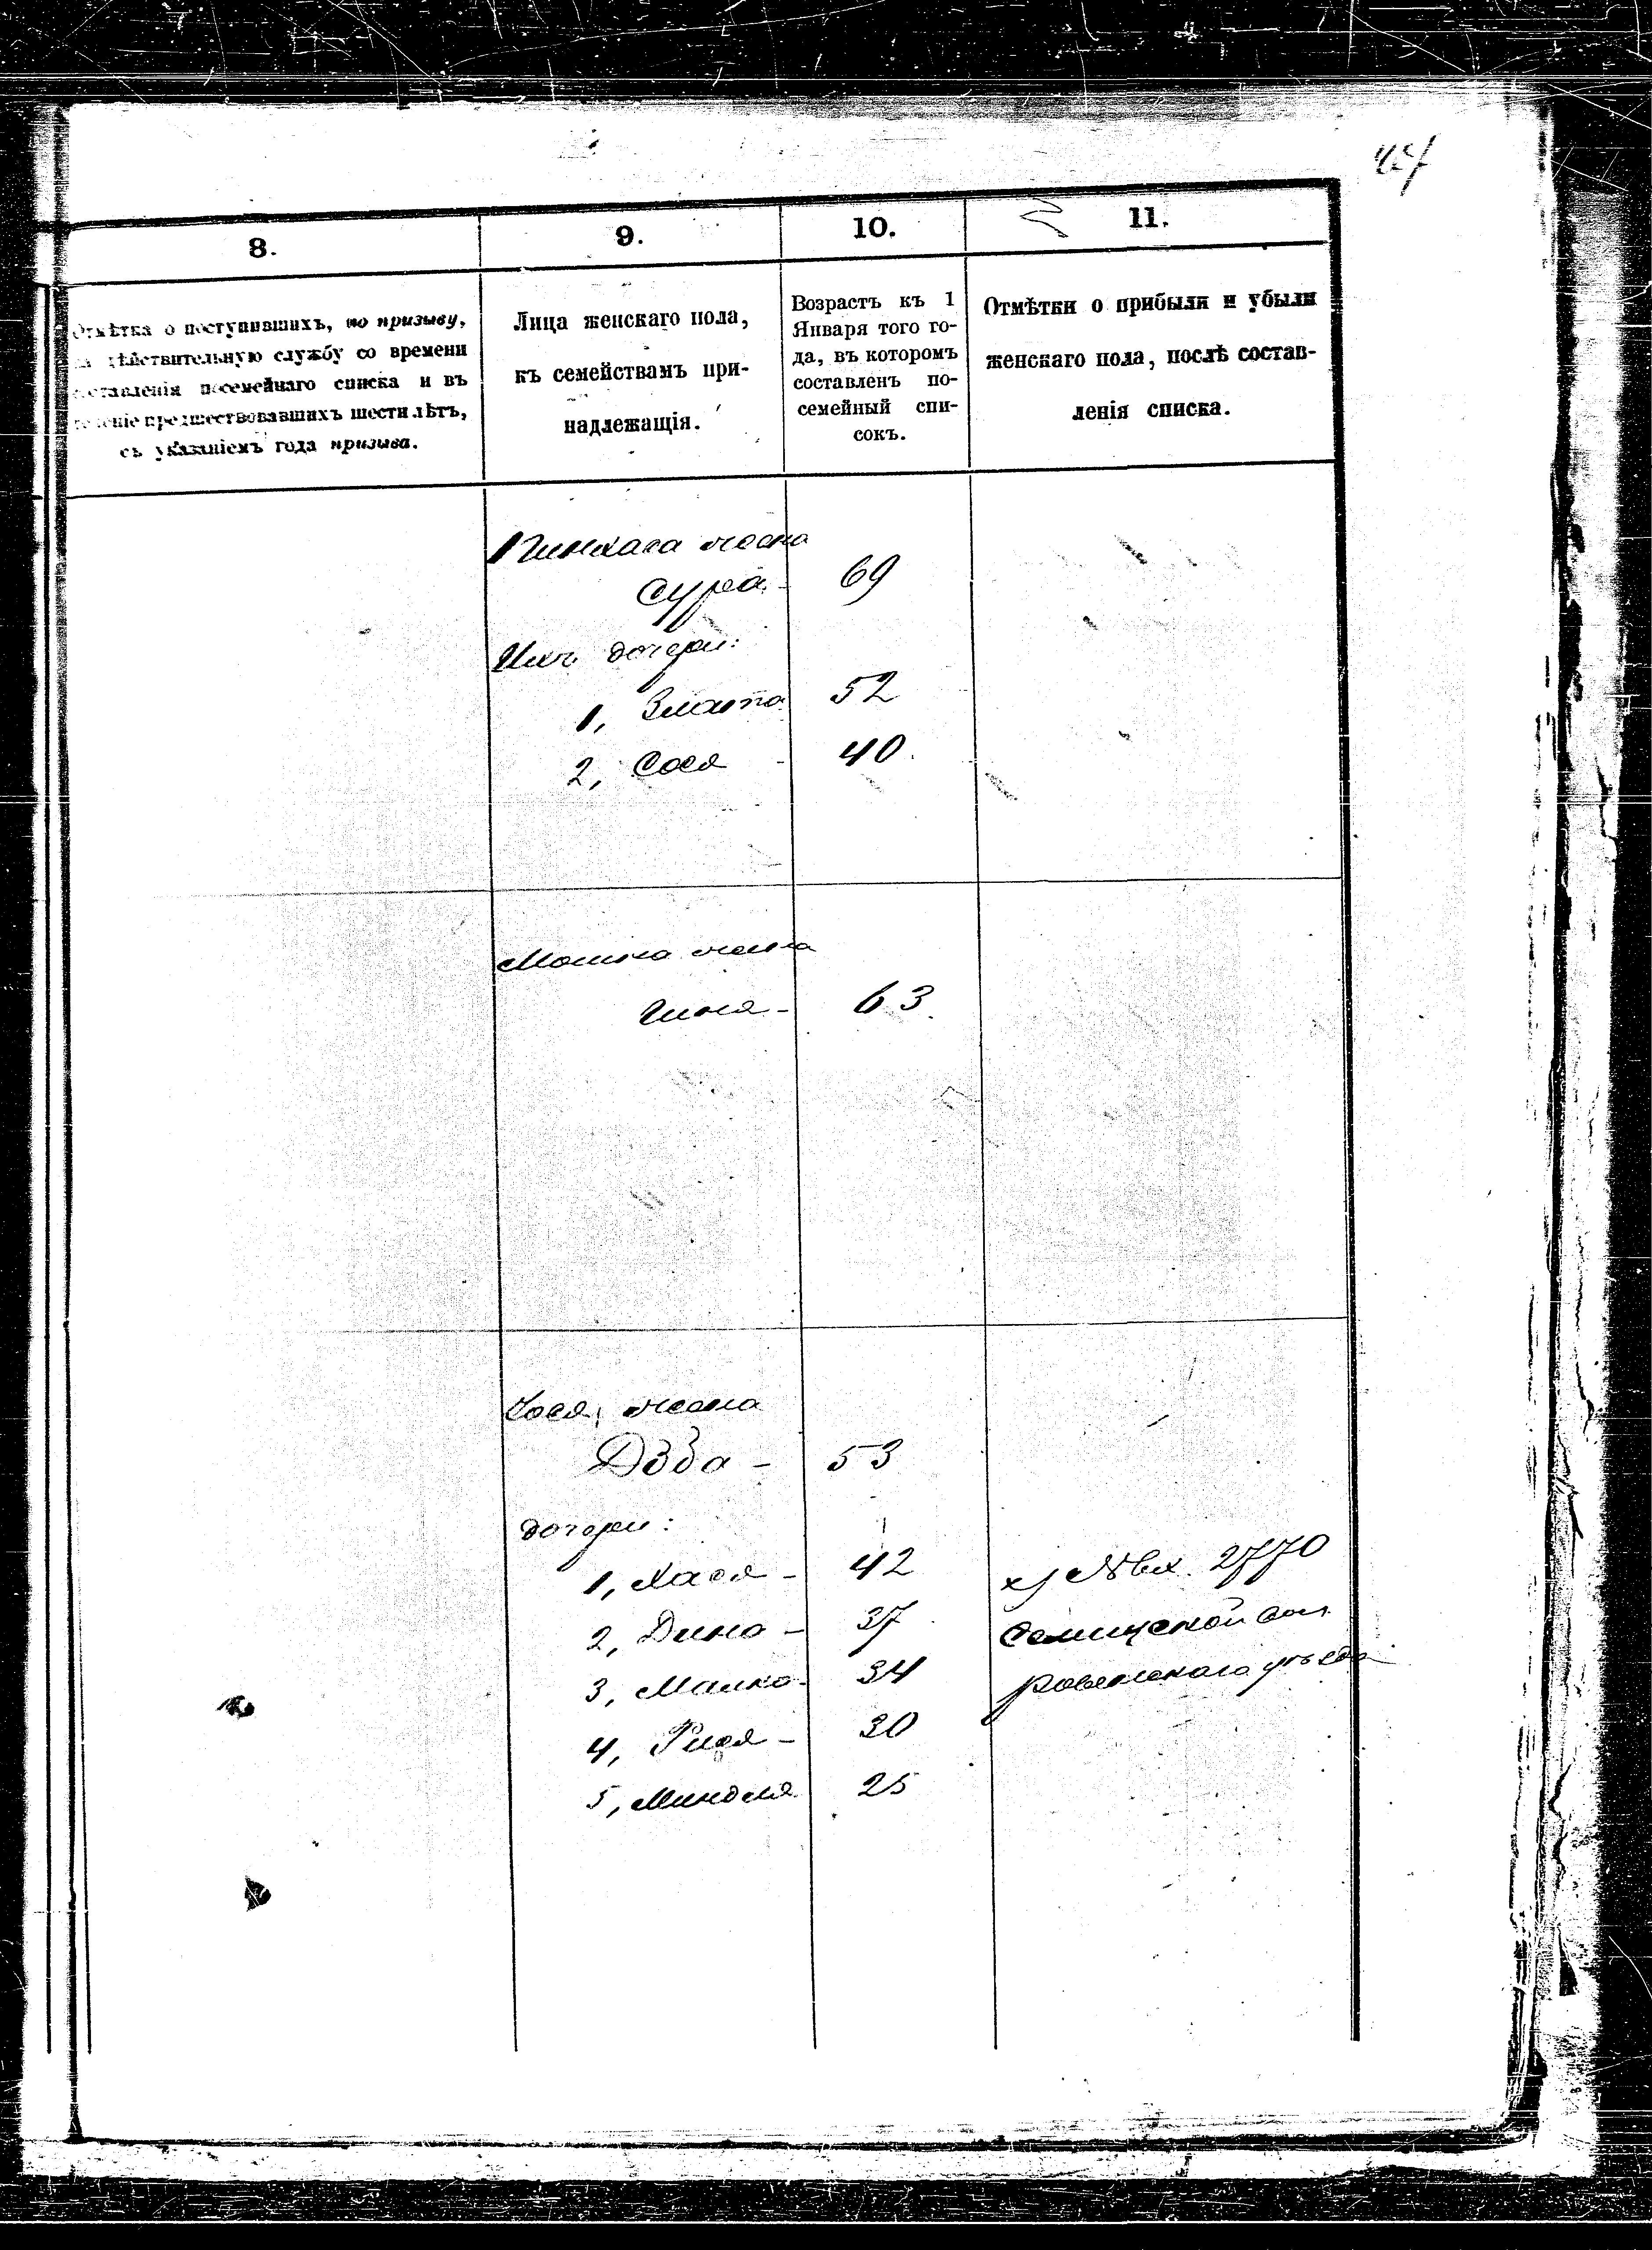 8.
9.
10.
11.
Отмѣтка о поступившихъ, по призыву,
на дѣйствительную службу со времени
составленія посемейнаго списка и въ
теченіе предшествовавшихъ шести лѣтъ,
съ указаніемъ года призыва.
Лица женскаго пола,
къ семействамъ при-
надлежащія.
Возрастъ къ 1
Января того го-
да, въ которомъ
составленъ по-
семейный спи-
сокъ.
Отмѣтки о прибыли и убыли
женскаго пола, послѣ состав-
ленія списка.
Пинхаса жена
Сура - 69
Ихъ дочери:
1, Злата 52
2, Сося - 40.
Мошка жена
63
жена
53
дочери:
1, Хася - 42
2, Дина - 37
3, Малка - 34
4, Рися - 30
5, Миндля 25
х) № вх. 2770
Селищской вол.
Ровенскаго уѣзда